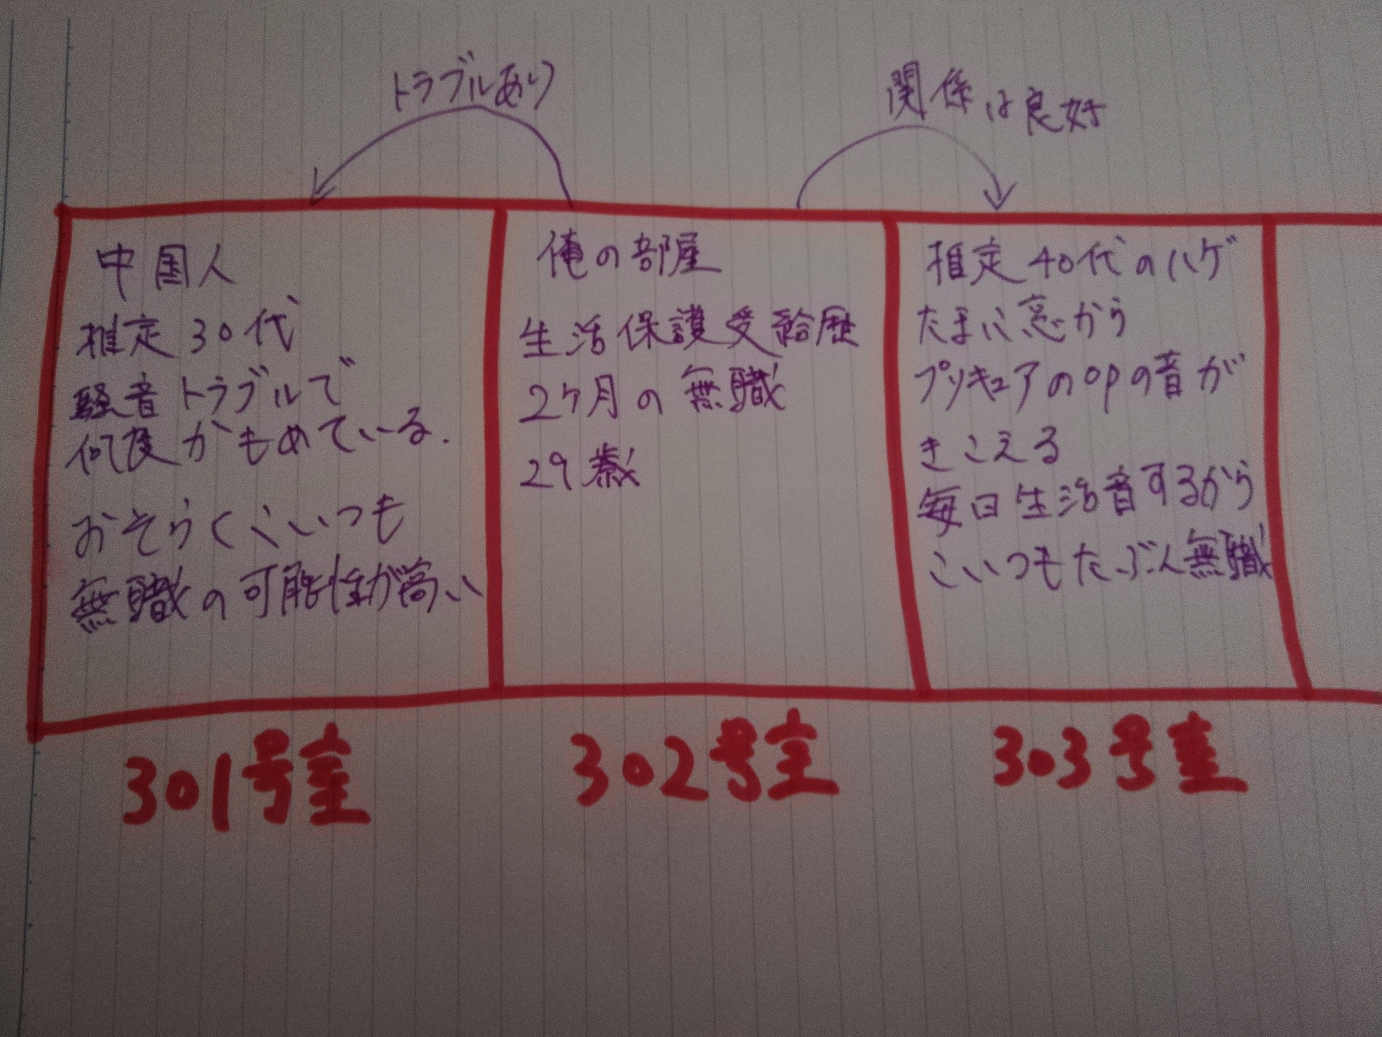 トラブルあり
関係は良好
中国人
推定30代
騒音トラブルで
何度かもめている.
おそらくこいつも
無職の可能性が高い
301号室
俺の部屋
生活保護受給歴
2ヶ月の無職
29歳
302号室
推定40代のハゲ
たまに窓から
プリキュアのOPの音が
きこえる
毎日生活音するから
こいつもたぶん無職
303号室